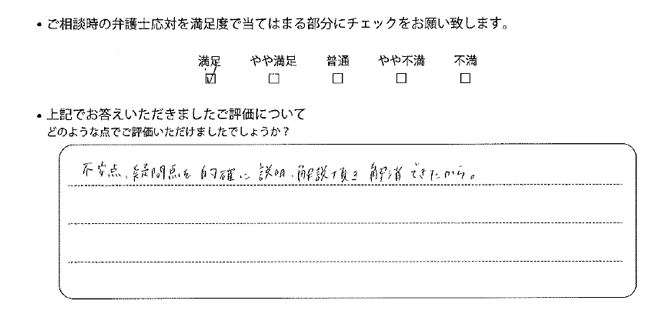 ・ご相談時の弁護士応対を満足度で当てはまる部分にチェックをお願い致します。
満足 やや満足 普通 やや不満 不満
☑ □ □ □ □
・上記でお答えいただきましたご評価について
どのような点でご評価いただけましたでしょうか？
不安点、疑問点を的確に説明、解説頂き解消できたから。